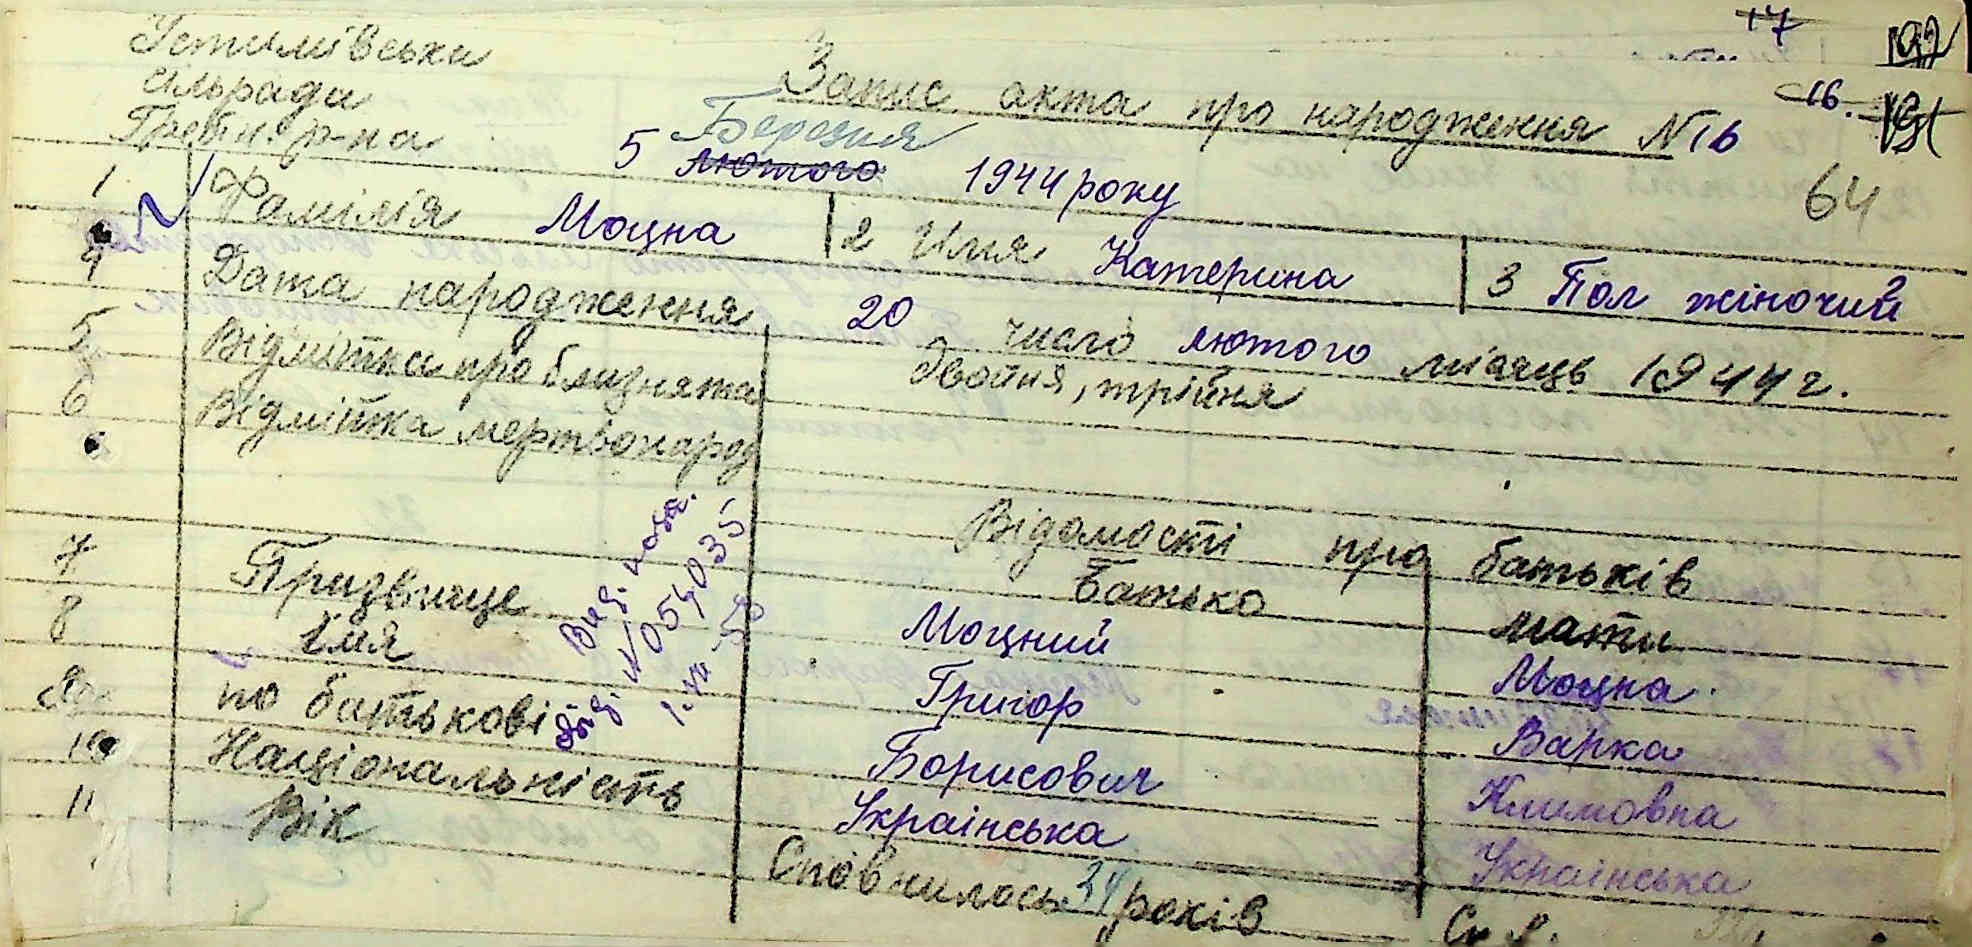 Устимівська
сільрада
р-на
17
16.
Запис акта про народження N 16
64
5 Березня лютого 1944 року
1 Фамілія Моцна 2 Имя Катерина 3 Пол жіночий
4 Дата народження 20 число лютого місяць 1944 г.
5 Відмітка про близнята двойня, трійня
6 Відмітка мертвонарод
Відомості про батьків
Батько мати
7 Призвище Моцний Моцна
8 Імя Григор Варка
по батькові Борисович Климовна
10 Національність Українська Українська
11 Вік Сповнилось 34 років
Вид. повт.
від. N 054035